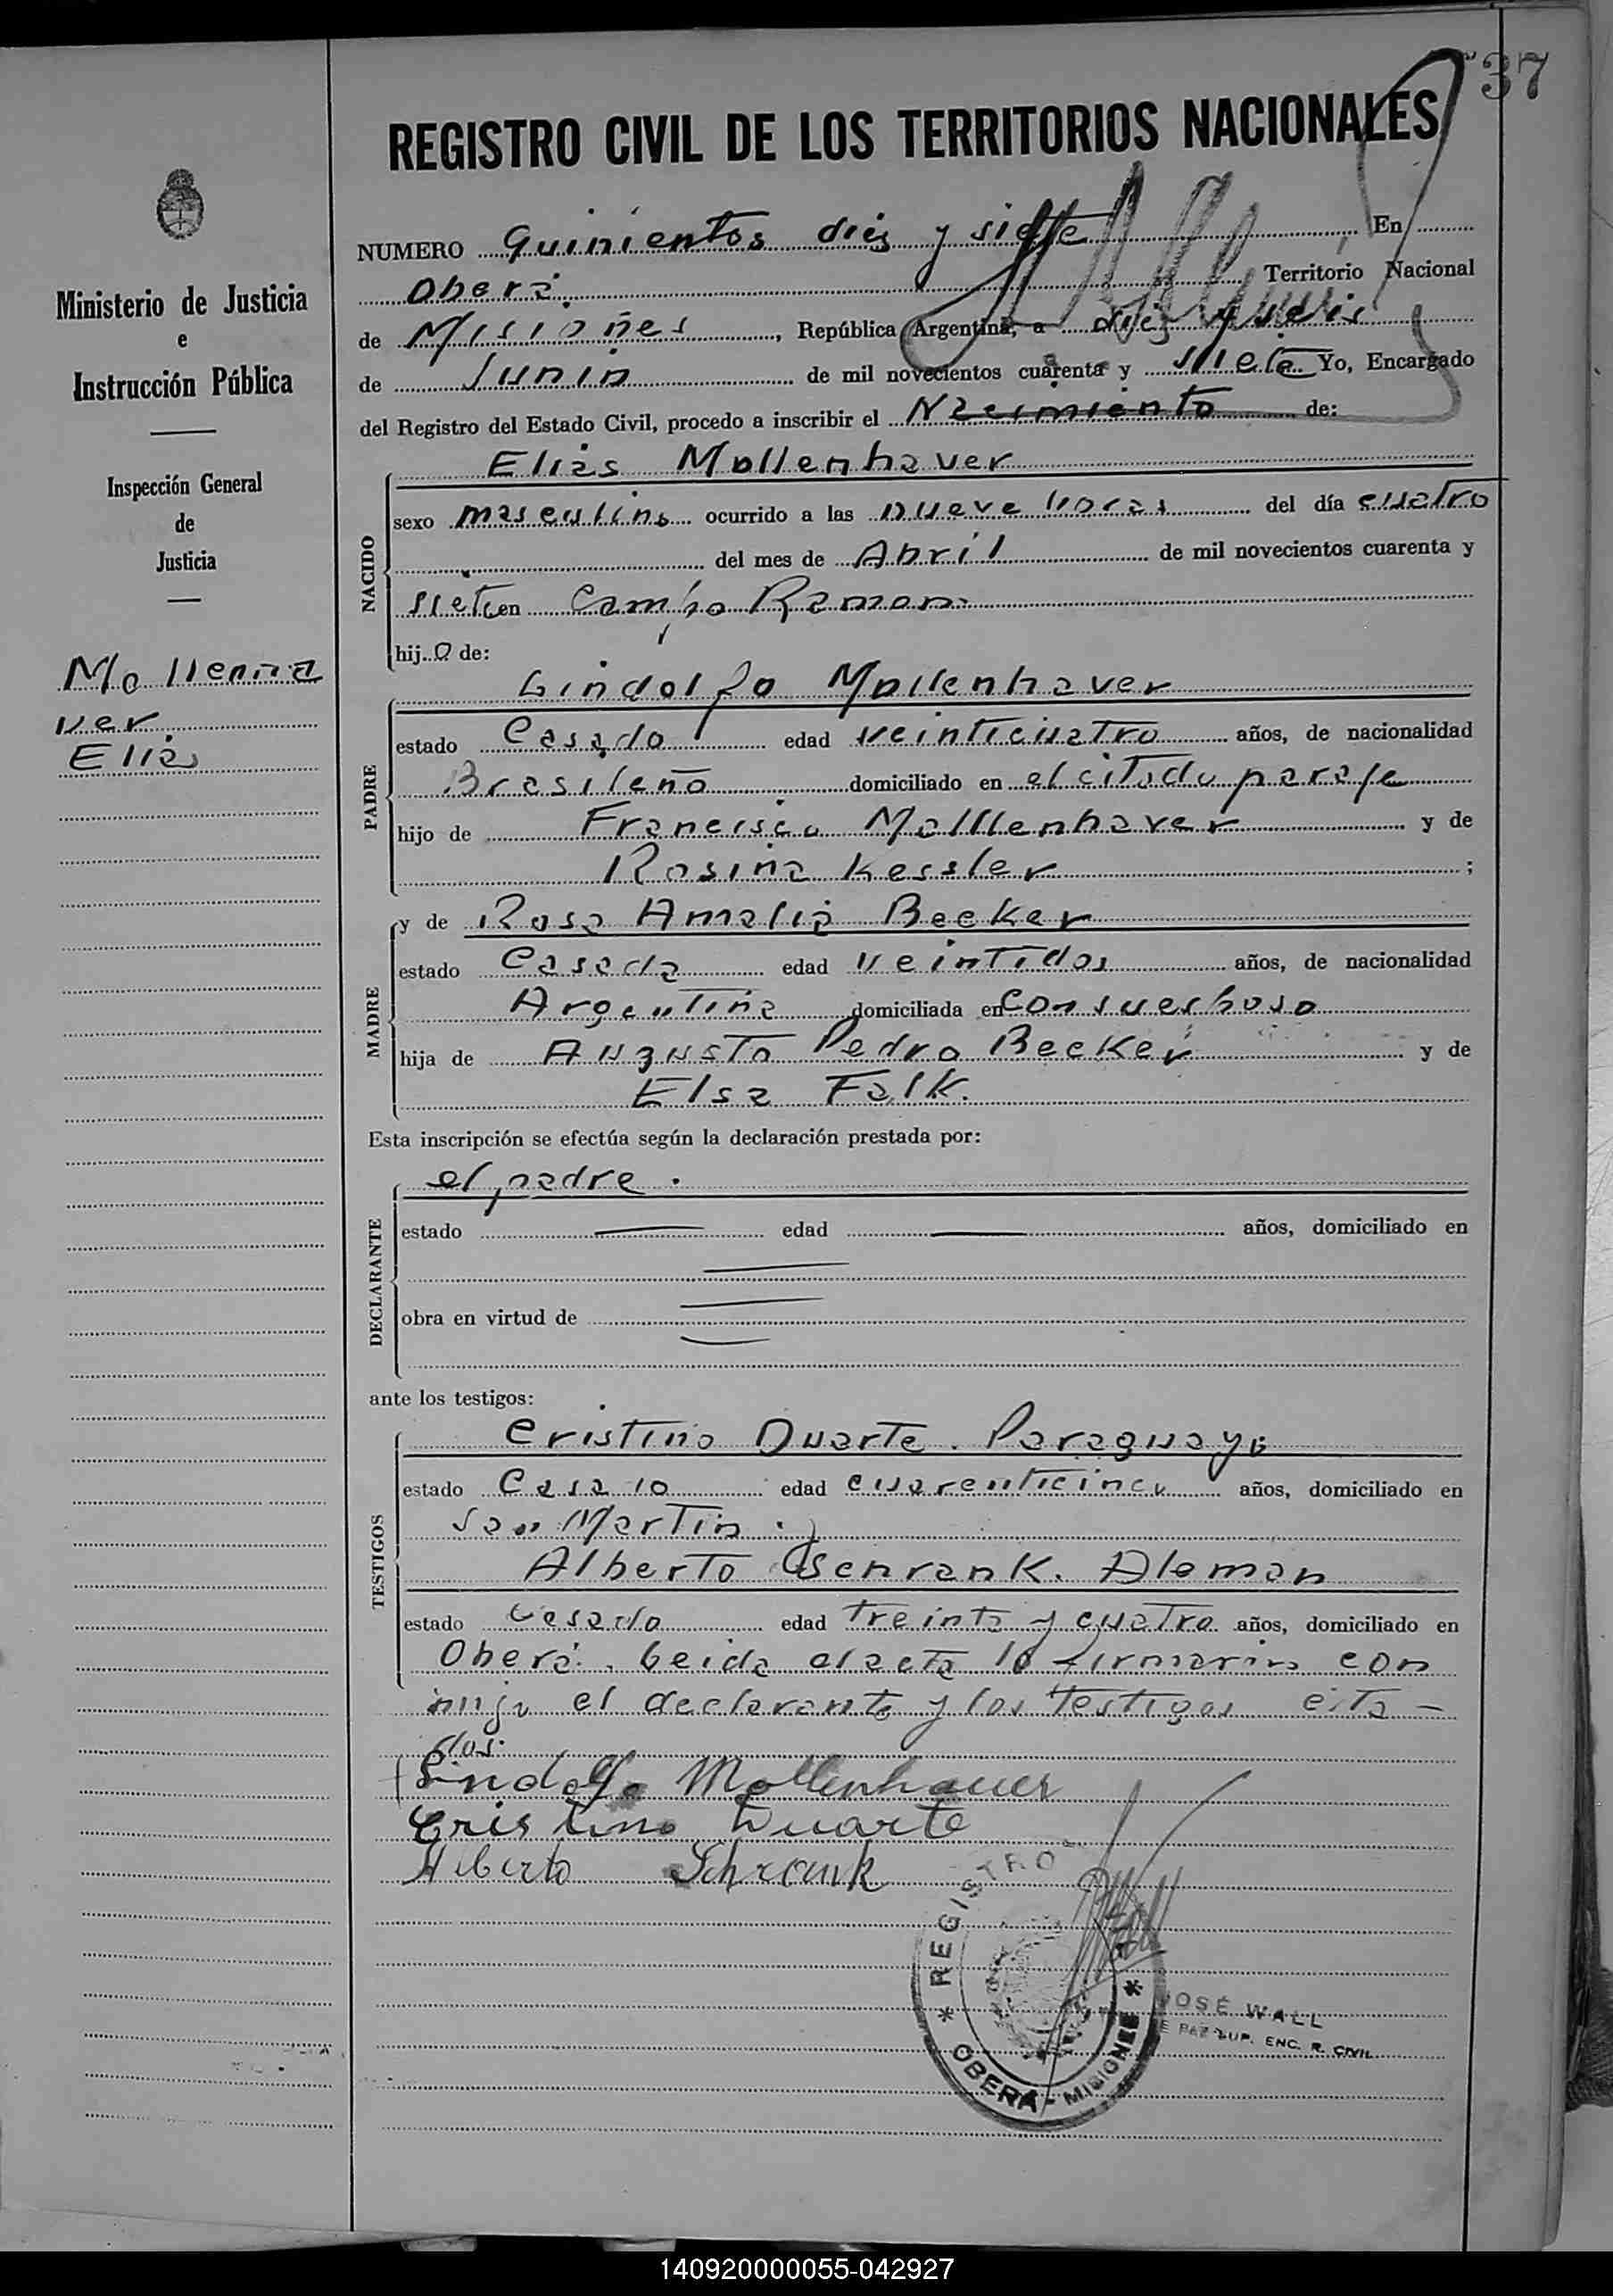 37
REGISTRO CIVIL DE LOS TERRITORIOS NACIONALES
Ministerio de Justicia
e
Instrucción Pública
Inspección General
de
Justicia
Mollenha
ver
Elias
NUMERO Quinientos diez y siete En
Oberá. Territorio Nacional
de Misiones, República Argentina, a diez y seis
de Junio de mil novecientos cuarenta y siete Yo, Encargado
del Registro del Estado Civil, procedo a inscribir el Nacimiento de:
NACIDO
Elias Mollenhaver
sexo masculino ocurrido a las nueve horas del día cuatro
del mes de Abril de mil novecientos cuarenta y
siete en Campo Ramon.
hijo de:
PADRE
Lindolfo Mollenhaver
estado Casado edad veinticuatro años, de nacionalidad
Brasileño domiciliado en el citado paraje
hijo de Francisco Molllenhaver y de
Rosina Kessler ;
MADRE
y de Rosa Amalia Becker
estado Casada edad veintidos años, de nacionalidad
Argentina domiciliada en con su esposo
hija de Augusto Pedro Becker y de
Elsa Falk.
Esta inscripción se efectúa según la declaración prestada por:
DECLARANTE
el padre.
estado edad años, domiciliado en
obra en virtud de
ante los testigos:
TESTIGOS
Cristino Duarte. Paraguayo
estado Casado edad cuarenticinco años, domiciliado en
San Martin. y
Alberto Schrank. Aleman
estado Casado edad treinta y cuatro años, domiciliado en
Oberá. Leida el acta la firmaron con
migo el declarante y los testigos cita-
dos.
Lindolfo Mollenhauer
Cristino Duarte
Alberto Schrank
* REGISTRO * OBERÁ - MISIONES
JOSÉ WALL
E PAZ SUP. ENC. R. CIVIL
140920000055-042927